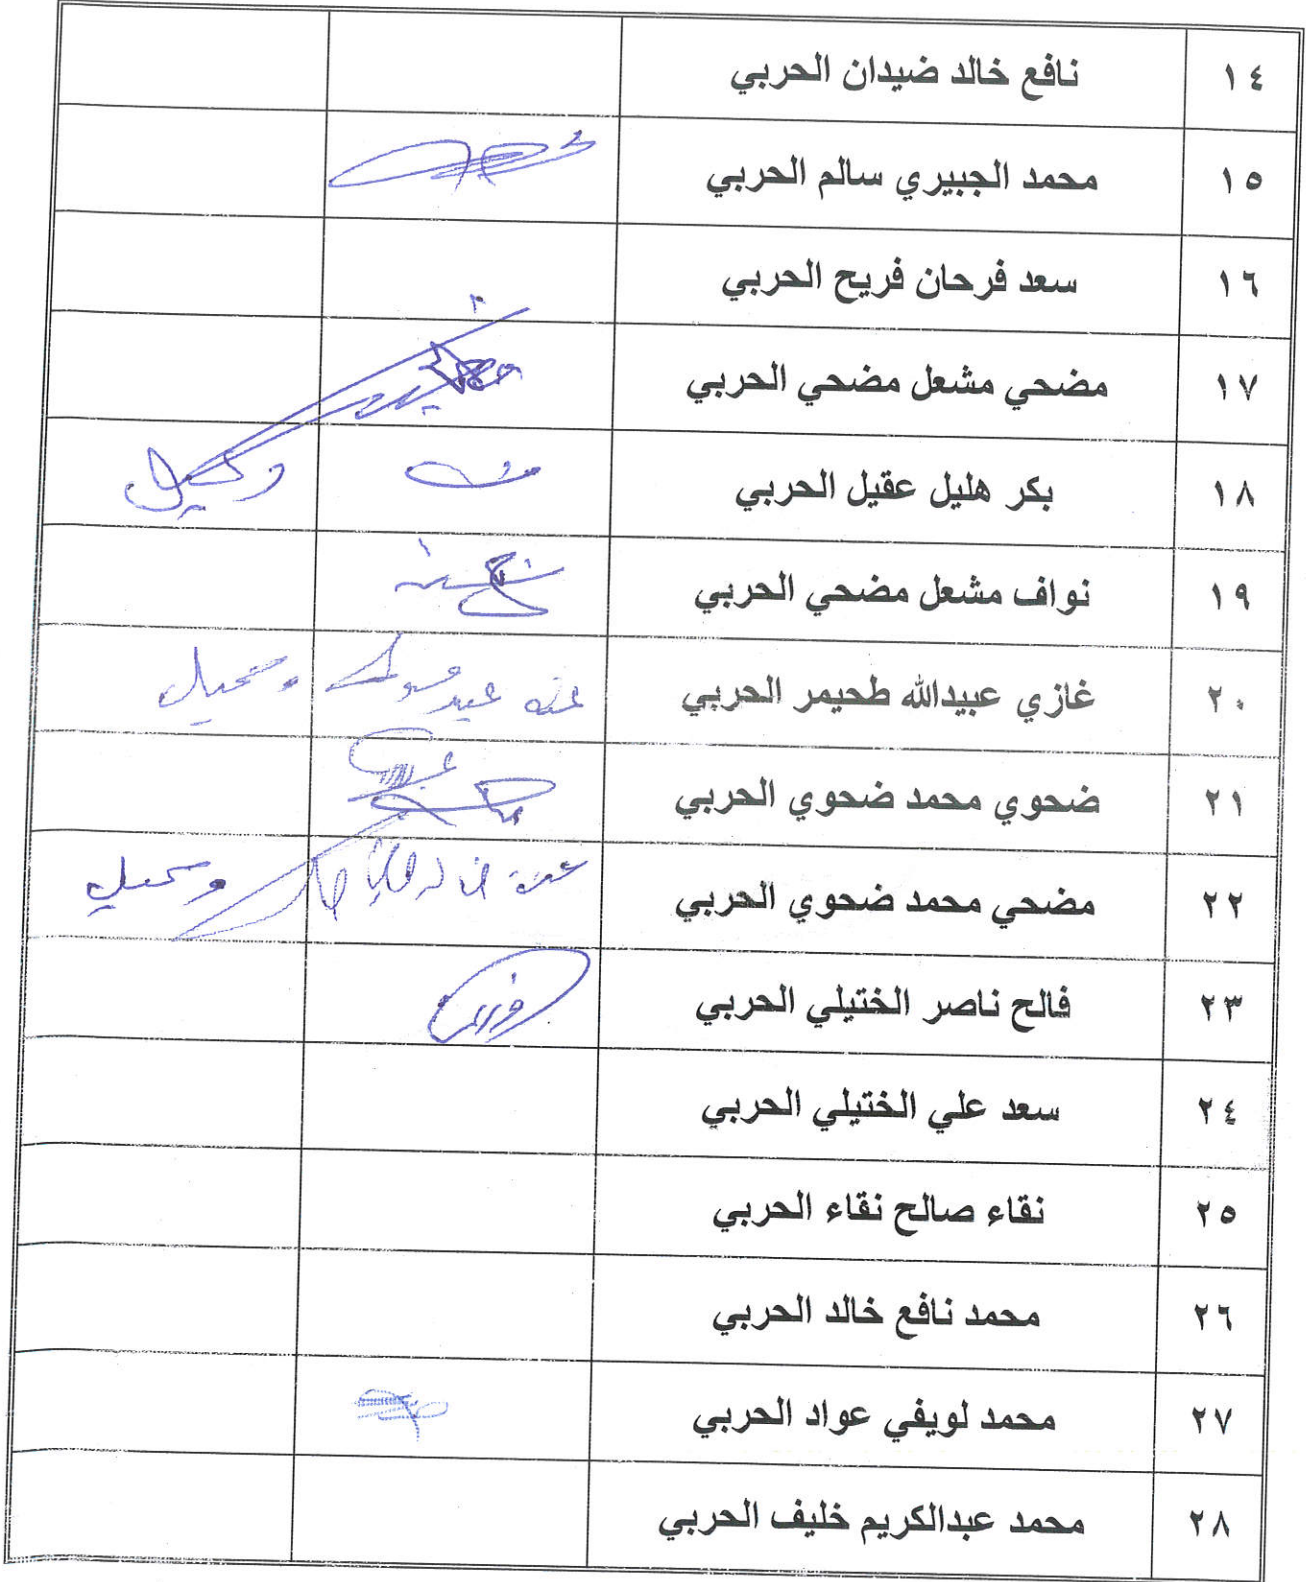 ١٤ نافع خالد ضيدان الحربي
١٥ محمد الجبيري سالم الحربي
١٦ سعد فرحان فريح الحربي
١٧ مضحي مشعل مضحي الحربي
١٨ بكر هليل عقيل الحربي وكيل
١٩ نواف مشعل مضحي الحربي
٢٠ غازي عبيدالله طحيمر الحربي عنه عبيد وكيل
٢١ ضحوي محمد ضحوي الحربي
٢٢ مضحي محمد ضحوي الحربي عنه وكيل
٢٣ فالح ناصر الختيلي الحربي
٢٤ سعد علي الختيلي الحربي
٢٥ نقاء صالح نقاء الحربي
٢٦ محمد نافع خالد الحربي
٢٧ محمد لويفي عواد الحربي
٢٨ محمد عبدالكريم خليف الحربي